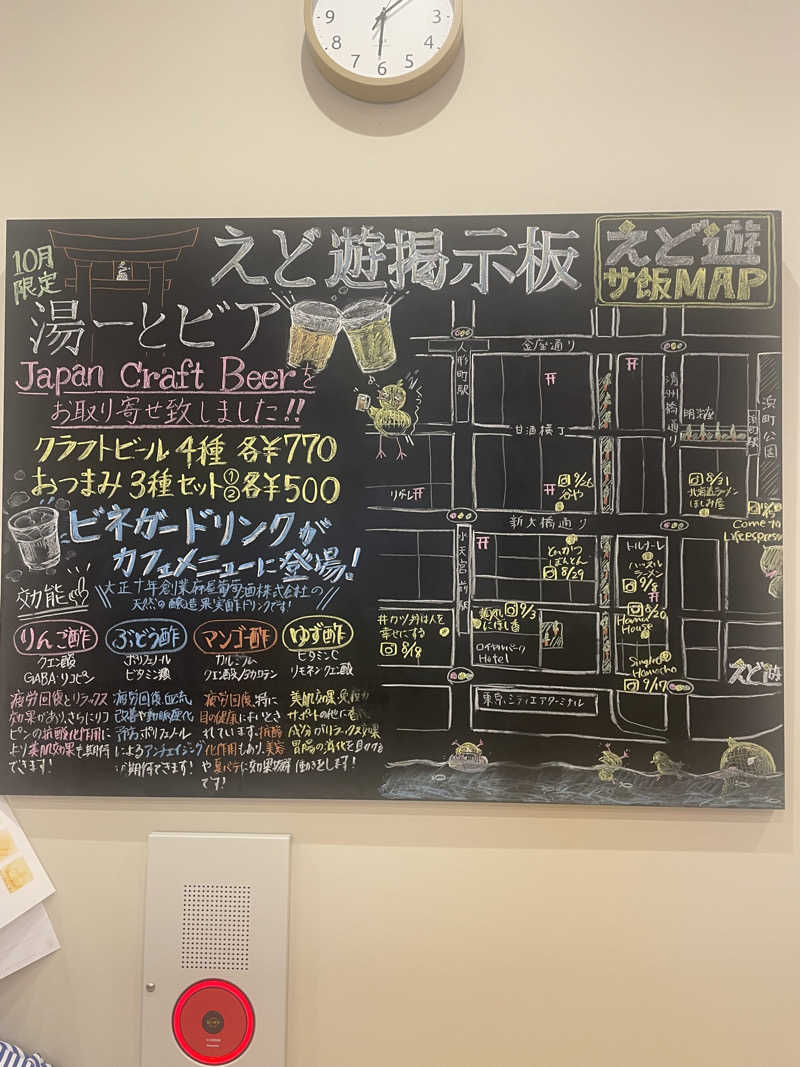 9
3
8
4
7
6
5
10月
限定
えど遊掲示板
湯ーとビア
Japan Craft Beerを
お取り寄せ致しました!!
クラフトビール 4種 各¥770
おつまみ 3種セット①②各¥500
ビネガードリンクが
カフェメニューに登場!
効能
大正十年創業
酒株式会社の
天然の醸造果実酢ドリンクです!
りんご酢
クエン酸
GABA・リコピン
疲労回復とリラックス
効果があり、さらにリコ
ピンの抗酸化作用に
より美肌効果も期待
できます!
ぶどう酢
ポリフェノール
ビタミン類
疲労回復、血流
改善や動脈硬化
予防、ポリフェノール
によるアンチエイジング
が期待できます!
マンゴー酢
カルシウム
クエン酸/βカロテン
疲労回復、特に
目の健康に良いとさ
れています。抗酸
化作用もあり、美容
や夏バテに効果を発揮
です!
ゆず酢
ビタミンC
リモネン クエン酸
美肌効果、免疫力
サポートの他に
成分がリラックス効果
胃腸の消化を助ける
働きをします!
えど遊
サ飯MAP
人形町駅
金座通り
清洲橋通り
明治座
浜町駅
浜町公園
甘酒横丁
リガレ
9/26
谷や
8/31
北海道ラーメン
ほしみ屋
新大橋通り
Come to
Life espresso
水天宮前駅
とんかつ
8/29
トルナーレ
ハッスル
ラーメン
9/8
9/3
にぼし香
9/20
Hama
House
#カツ丼は人を
幸せにする
8/8
ロイヤルパーク
Hotel
Single
Hamacho
9/17
えど遊
東京シティエアターミナル